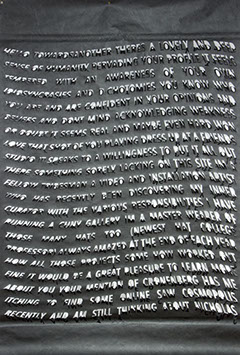 THERE'S A LONELY AND
SENSE OF HUMANITY PERVADING YOUR PROFILE IT FEELS
TEMPERED WITH AN AWARENESS OF YOUR OWN
IDIOSYNCRASIES AND DICHOTOMIES YOU KNOW WHO
YOU ARE AND ARE CONFIDENT IN YOUR OPINIONS AND
AND DON'T MIND ACKNOWLEDGING
NO DOUBT IT SEEMS REAL AND MAYBE
LOVE THAT SHOT OF YOU PLAYING DRESS UP AT A FRIENDS
IT SPEAKS TO A WILLINGNESS TO PUT IT ALL OUT
THERE SOMETHING SORELY LACKING ON THIS SITE I'M A
FELLOW A VIDEO AND INSTALLATION ARTIST
WHO HAS RECENTLY BEEN DISCOVERING THE
CURATOR WITH THE VARIOUS RESPONSIBILITIES I HAVE
RUNNING A TINY GALLERY I'M A MASTER WEARER OF
THOSE MANY HATS NEWEST HAT COLLEGE
PROFESSOR ALWAYS AMAZED AT THE END OF EACH YEAR
HOW ALL THOSE PROJECTS SOMEHOW WORKED OUT
FINE IT WOULD BE A GREAT PLEASURE TO LEARN MORE
ABOUT YOU YOUR MENTION OF CRONENBERG HAS ME
ITCHING TO FIND SOME ONLINE SAW COSMOPOLIS
RECENTLY AND AM STILL THINKING ABOUT NICHOLAS